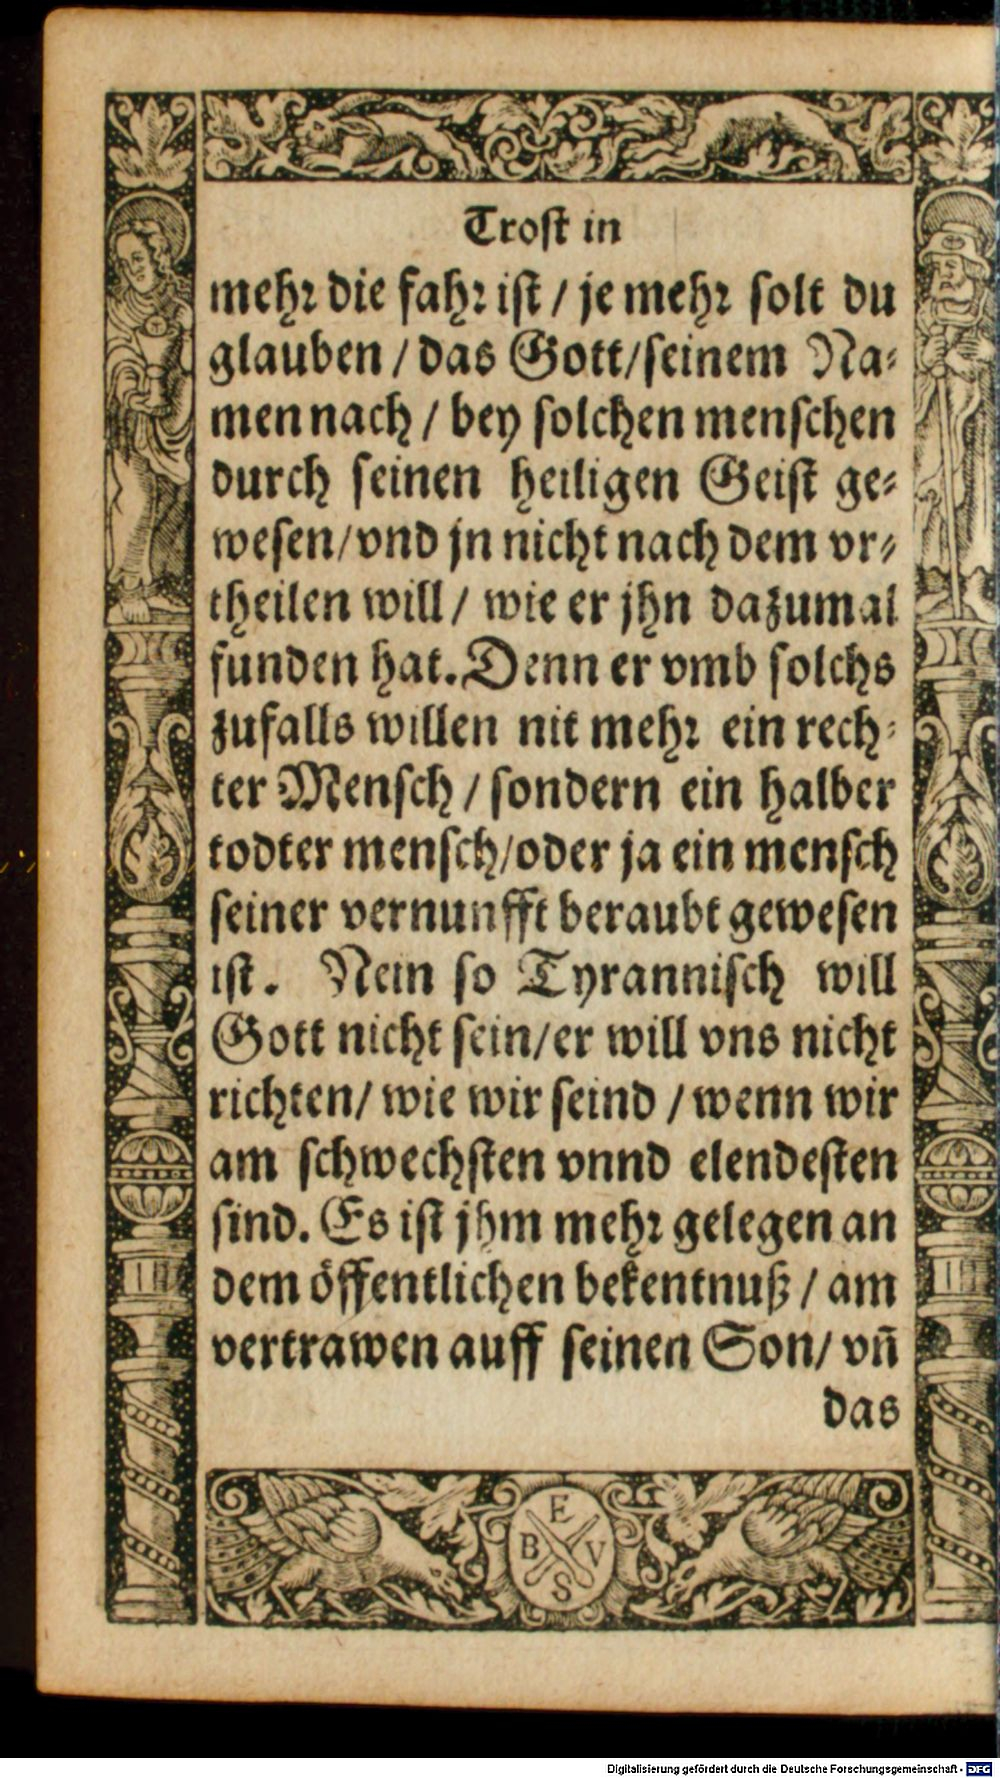 Trost in
mehr die fahr ist / je mehr solt du
glauben / das Gott/seinem Na-
men nach / bey solchen menschen
durch seinen heiligen Geist ge-
wesen/vnd jn nicht nach dem vr-
theilen will / wie er jhn dazumal
funden hat. Denn er vmb solchs
zufalls willen nit mehr ein rech-
ter Mensch / sondern ein halber
todter mensch/oder ja ein mensch
seiner vernunfft beraubt gewesen
ist. Nein so Tyrannisch will
Gott nicht sein/er will vns nicht
richten/ wie wir seind / wenn wir
am schwechsten vnnd elendesten
sind. Es ist jhm mehr gelegen an
dem öffentlichen bekentnuß / am
vertrawen auff seinen Son/ vñ
das
E
B V
S
Digitalisierung gefördert durch die Deutsche Forschungsgemeinschaft - DFG